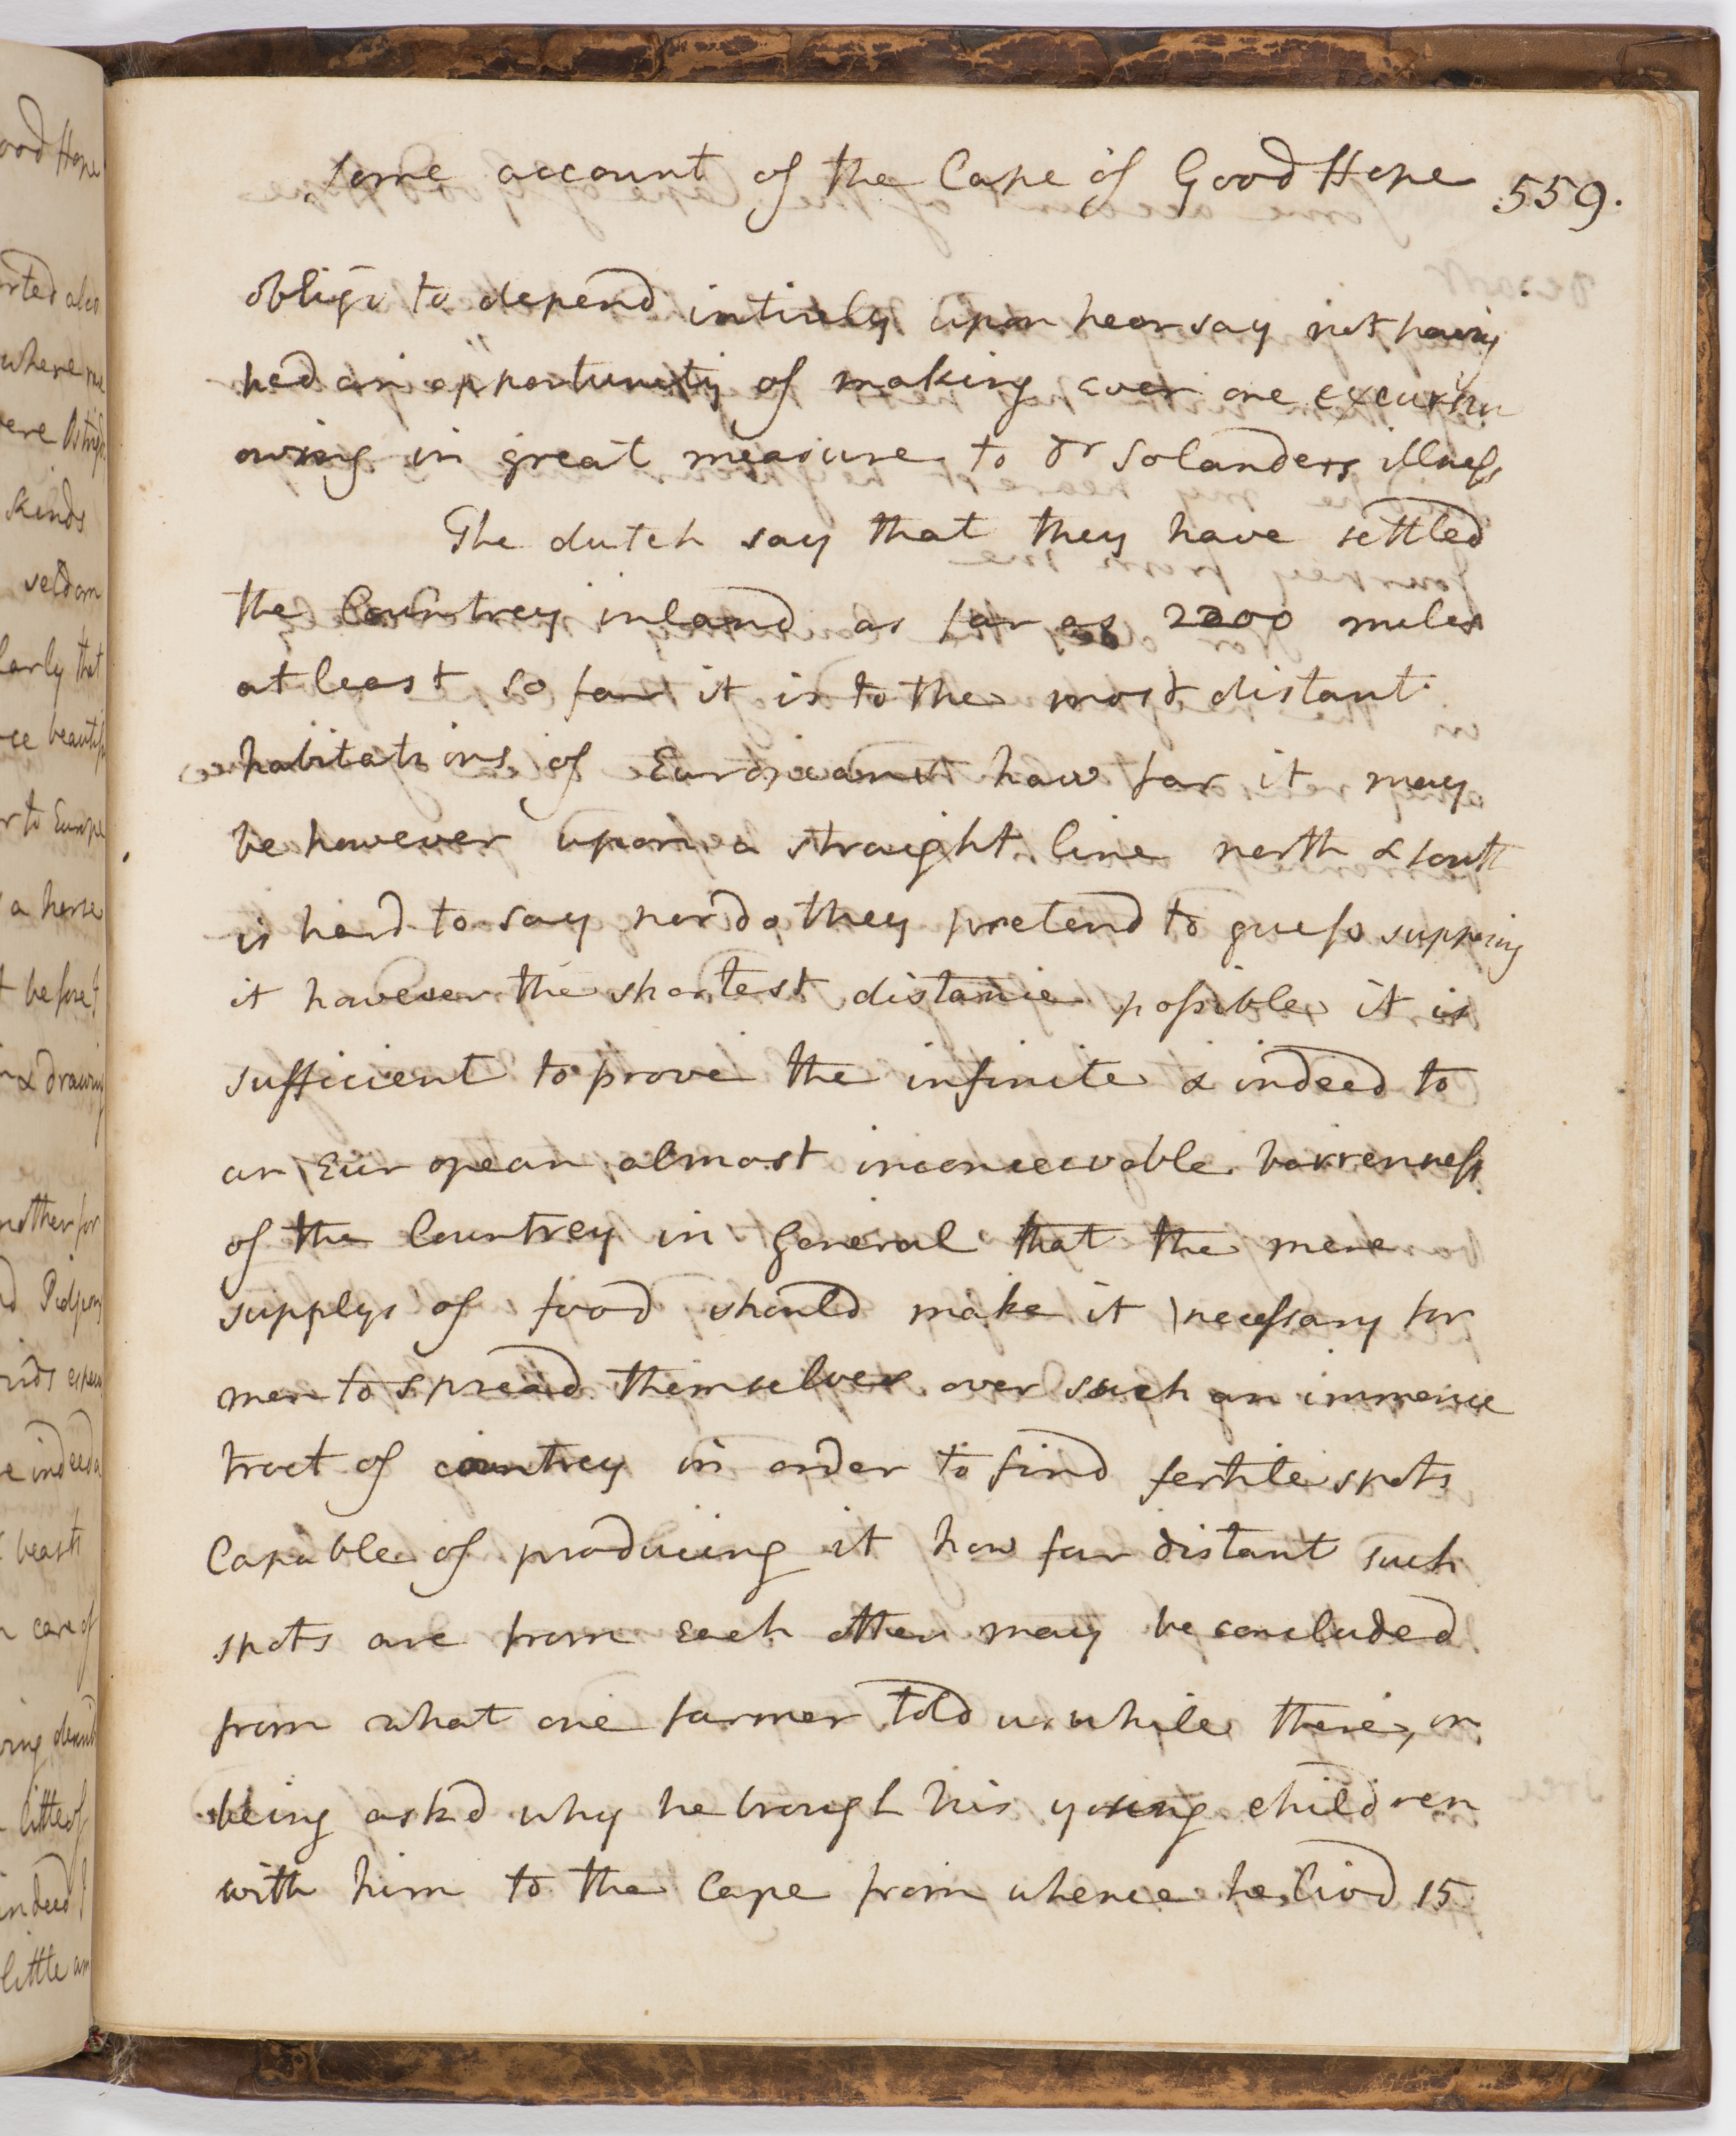 Some account of the Cape of Good Hope 559.
obligd to depend intirely upon hearsay not having
had an opportunity of making even one excursion
owing in great measure to Dr Solanders illness
The dutch say that they have settled
the Countrey inland as far as 2200 miles
at least so far it is to the most distant
habitations of Europeans how far it may
be however upon a straight line north & south
is hard to say nor do they pretend to guess supposing
it however the shortest distance possible it is
sufficient to prove the infinite & indeed to
an European almost inconceivable barrenness
of the Countrey in general that the mere
supplys of food should make it necessary for
men to spread themselves over such an immence
tract of countrey in order to find fertile spots
Capable of producing it how far distant such
spots are from each other may be concluded
from what one farmer told us while there, on
being askd why he brough his young children
with him to the Cape from whence he livd 15
ood Hope
rted also
where
ere
kinds
seldom
larly that
ce
r to Europe
a horse
t before
& drawing
nother for
d Pidgeons
rids
e indeed a
beasts
care of
ring
little of
indeed
little